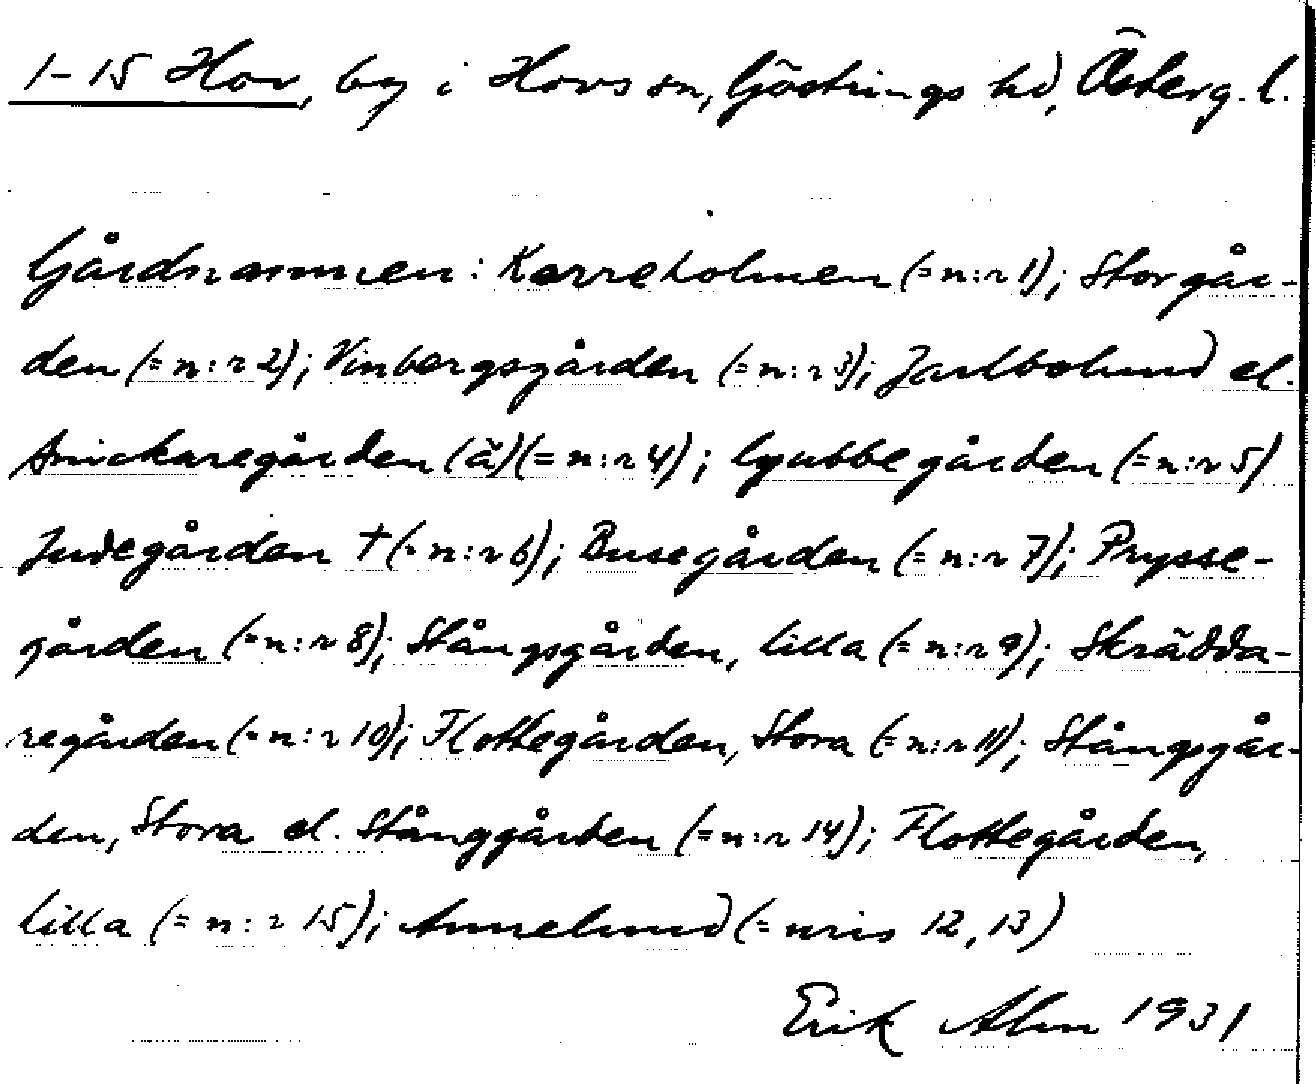 1-15 Hov, by i Hovs sn, Göstrings hd, Österg. l.
Gårdsnamnen: Karreholmen (= n:r 1); Storgår-
den (= n:r 2); Vinbergsgården (= n:r 3); Jarlbolund el.
Snickaregården (ä) (= n:r 4); Gubbegården (= n:r 5)
Judegården † (= n:r 6); Busegården (= n:r 7); Prysse-
gården (= n:r 8); Stångsgården, lilla (= n:r 9); Skrädda-
regården (= n:r 10); Flottegården, Stora (= n:r 11); Stångsgår-
den, Stora el. Stånggården (= n:r 14); Flottegården,
lilla (= n:r 15); Annelund (= nris 12, 13)
Erik Alm 1931